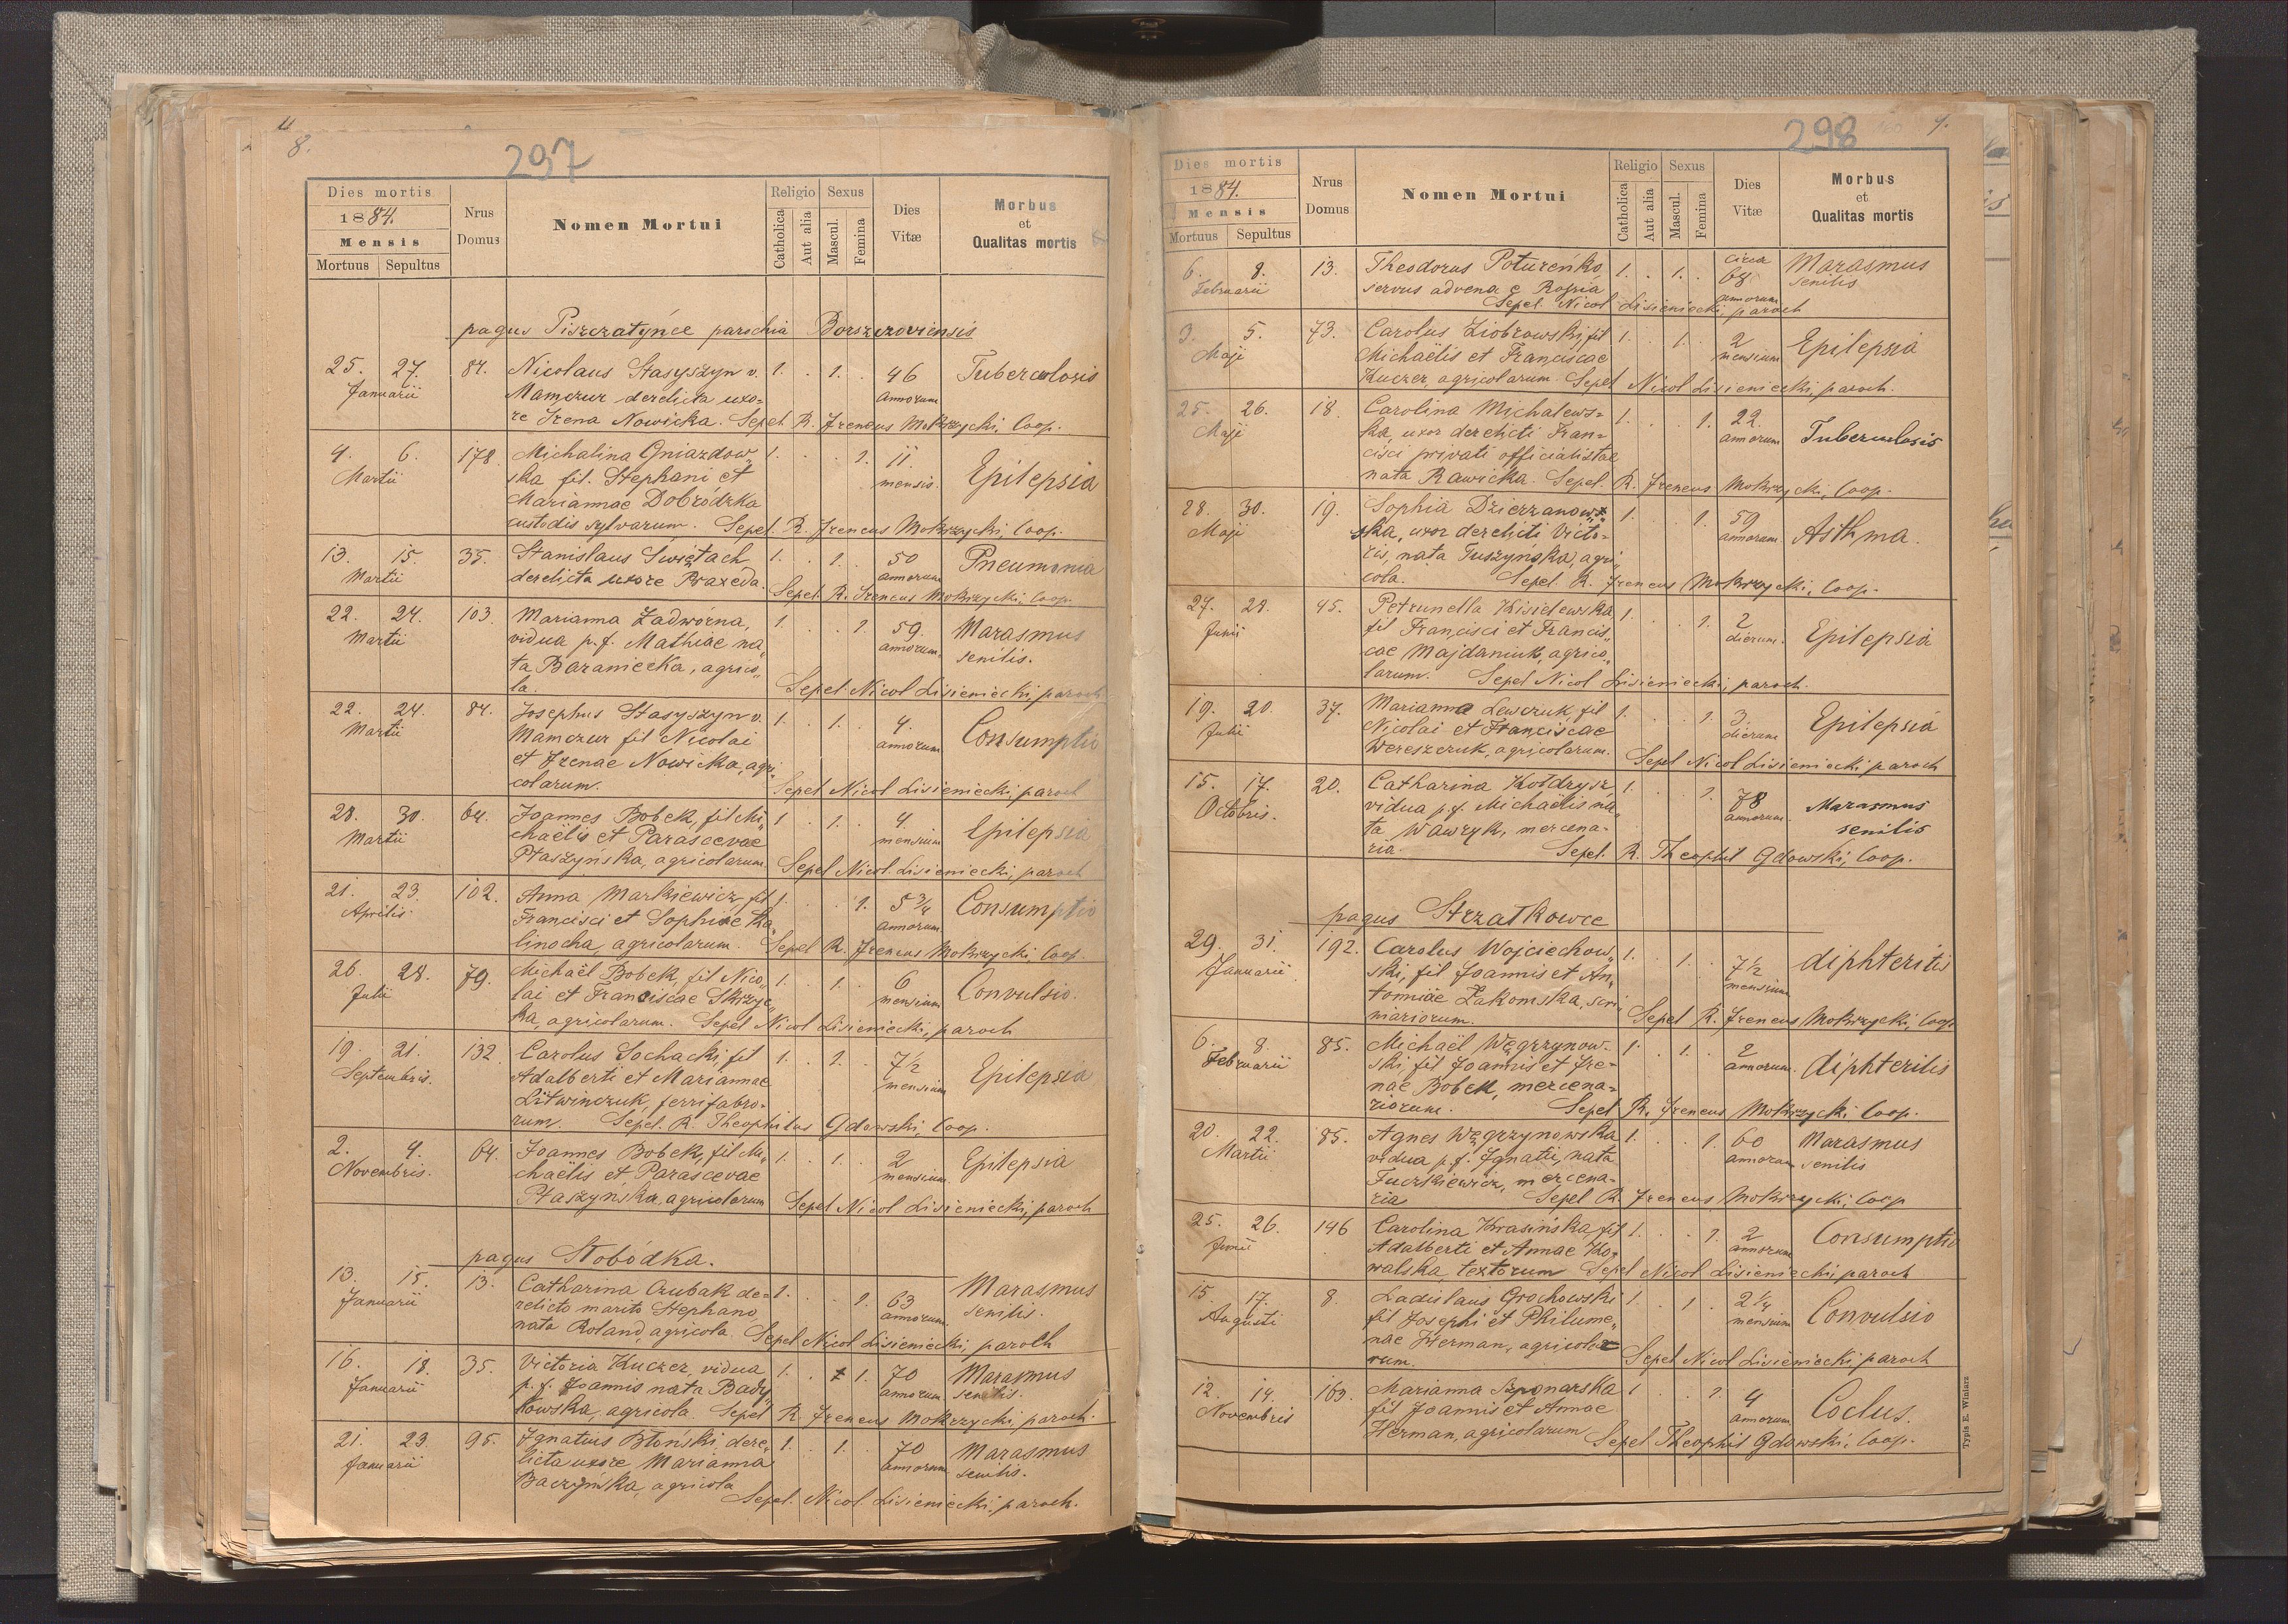 8.
297
Dies mortis
1884.
Mensis
Mortuus Sepultus
Nrus Domus
Nomen Mortui
Religio
Catholica
Aut alia
Sexus
Mascul.
Femina
Dies Vitæ
Morbus
et
Qualitas mortis
pagus Piszczatyńce parochia Borszczoviensis
25. 27. 84. Nicolaus Stasyszyn v. 1. 1. 46 Tuberculosis
Januarii Mamczur derelicta uxo= annorum
re Irena Nowicka. Sepel. R. Ireneus Mokrzycki, Coop.
4. 6. 178. Michalina Gniazdow„ 1. 1. 11. Epilepsia
Martii ska fil. Stephani et mensis.
Mariannae Dobródzka
custodis sylvarum. Sepel. R. Ireneus Mokrzycki, Coop.
13. 15. 35. Stanislaus Swiętach 1. 1. 50 Pneumonia
Martii derelicta uxore Praxeda. annorum
Sepel. R. Ireneus Mokrzycki, Coop.
22. 24. 103. Marianna Zadwórna, 1. 1. 59. Marasmus
Martii vidua p. f. Mathiae na„ annorum. senilis.
ta Baraniecka, agrico„
la. Sepel. Nicol Lisieniecki, paroch.
22. 24. 84. Josephus Stasyszyn v. 1. 1. 4. Consumptio
Martii Mamczur fil Nicolai annorum
et Irenae Nowicka, agri„
colarum. Sepel Nicol Lisieniecki, paroch
28. 30. 64. Joannes Bobek, fil Mi„ 1 1. 4. Epilepsia
Martii chaëlis et Parascevae mensium
Ptaszyńska, agricolarum Sepel Nicol. Lisieniecki, paroch
21. 23. 102. Anna Markiewicz, fil 1. 1. 5 3/4 Consumptio
Aprilis. Francisci et Sophiae Ka„ annorum
linocha, agricolarum. Sepel R. Ireneus Mokrzycki, Coop.
26. 28. 79. Michaël Bobek, fil Nico„ 1. 1. 6 Convulsio.
Julii lai et Franciscae Skrzyc„ mensium
ka, agricolarum. Sepel Nicol Lisieniecki, paroch
19. 21. 132. Carolus Sochacki, fil 1. 1. 7½ Epilepsia
Septembris. Adalberti et Mariannae mensium
Litwinczuk, ferrifabro=
rum. Sepel. R. Theophilus Gdowski, Coop.
2. 4. 64. Joannes Bobek, fil Mi„ 1. 1. 2 Epilepsia
Novembris. chaëlis et Parascevae mensium
Ptaszyńska, agricolarum Sepel Nicol Lisieniecki, paroch
pagus Słobódka.
13. 15. 13. Catharina Czubak de= 1. 1. 63 Marasmus
Januarii relicto marito Stephano, annorum. senilis.
nata Roland, agricola. Sepel Nicol Lisieniecki, paroch
16. 18. 35. Victoria Kuczer, vidua 1. 1. 70 Marasmus
Januarii p. f. Joannis nata Bady„ annorum senilis.
kowska, agricola. Sepel R. Ireneus Mokrzycki, paroch.
21. 23. 95. Ignatius Błoński, dere„ 1. 1. 70 Marasmus
Januarii licta uxore Marianna annorum senilis.
Baczyńska, agricola
Sepel. Nicol Lisieniecki, paroch.
298
9.
Dies mortis
1884.
Mensis
Mortuus Sepultus
Nrus Domus
Nomen Mortui
Religio
Catholica
Aut alia
Sexus
Mascul.
Femina
Dies Vitæ
Morbus
et
Qualitas mortis
6. 8. 13. Theodorus Potureńko, 1. 1. circa 68 Marasmus
Februarii servus advena e Rossia annorum senilis
Sepel. Nicol Lisieniecki, paroch
3. 5. 73. Carolus Ziobrowski, fil 1. 1. 2 Epilepsia
Maji Michaëlis et Franciscae mensium
Kuczer, agricolarum. Sepel Nicol Lisieniecki, paroch.
25. 26. 18. Carolina Michalews= 1. 1. 22. Tuberculosis
Maji ka, uxor derelicti Fran= annorum
cisci privati officialistae
nata Rawicka. Sepel. R. Ireneus Mokrzycki, Coop.
28. 30. 19. Sophia Dzierzanow„ 1. 1. 59 Asthma.
Maji ska, uxor derelicti Victo= annorum.
ris, nata Tuszyńska, agri„
cola. Sepel. R. Ireneus Mokrzycki, Coop.
27. 28. 45. Petrunella Kisielewska, 1. 1. 2 Epilepsia
Junii fil Francisci et Francis„ dierum.
cae Majdaniuk, agrico„
larum. Sepel Nicol Lisieniecki, paroch.
19. 20. 37. Marianna Lewczuk, fil 1. 1. 3. Epilepsia
Julii Nicolai et Franciscae dierum
Wereszczuk, agricolarum. Sepel Nicol Lisieniecki paroch
15. 17. 20. Catharina Kołdrysz, 1. 1. 78 Marasmus
Octobris. vidua p. f. Michaëlis na„ annorum. senilis
ta Wawryk, mercena-
ria. Sepel. R. Theophil Gdowski, Coop.
pagus Strzałkowce
29. 31. 192. Carolus Wojciechow„ 1. 1. 7½ diphteritis
Januarii ski, fil Joannis et An„ mensium
toniae Zakomska, scri„
niariorum. Sepel R. Ireneus Mokrzycki, Coop
6. 8. 85. Michaël Węgrzynow- 1. 1. 2 diphteritis
Februarii ski, fil Joannis et Ire- annorum.
nae Bobek, mercena=
riorum. Sepel R. Ireneus Mokrzycki Coop.
20. 22. 85. Agnes Węgrzynowska 1. 1. 60 Marasmus
Martii vidua p. f. Ignatii, nata annorum senilis
Fuczkiewicz, mercena-
ria Sepel R. Ireneus Mokrzycki, Coop
25. 26. 146 Carolina Krasińska, fil 1. 1. 2 Consumptio
Junii Adalberti et Annae Ko„ annorum
walska, textorum Sepel Nicol Lisieniecki, paroch
15. 17. 8 Ladislaus Grochowski 1. 1. 2¼ Convulsio
Augusti fil Josephi et Philume„ mensium
nae Herman, agricola
rum. Sepel Nicol Lisieniecki, paroch
12. 14. 163. Marianna Szponarska 1 1. 4 Coclus.
Novembris fil Joannis et Annae annorum
Herman, agricolarum Sepel Theophil Gdowski, Coop.
Typis E. Winiarz